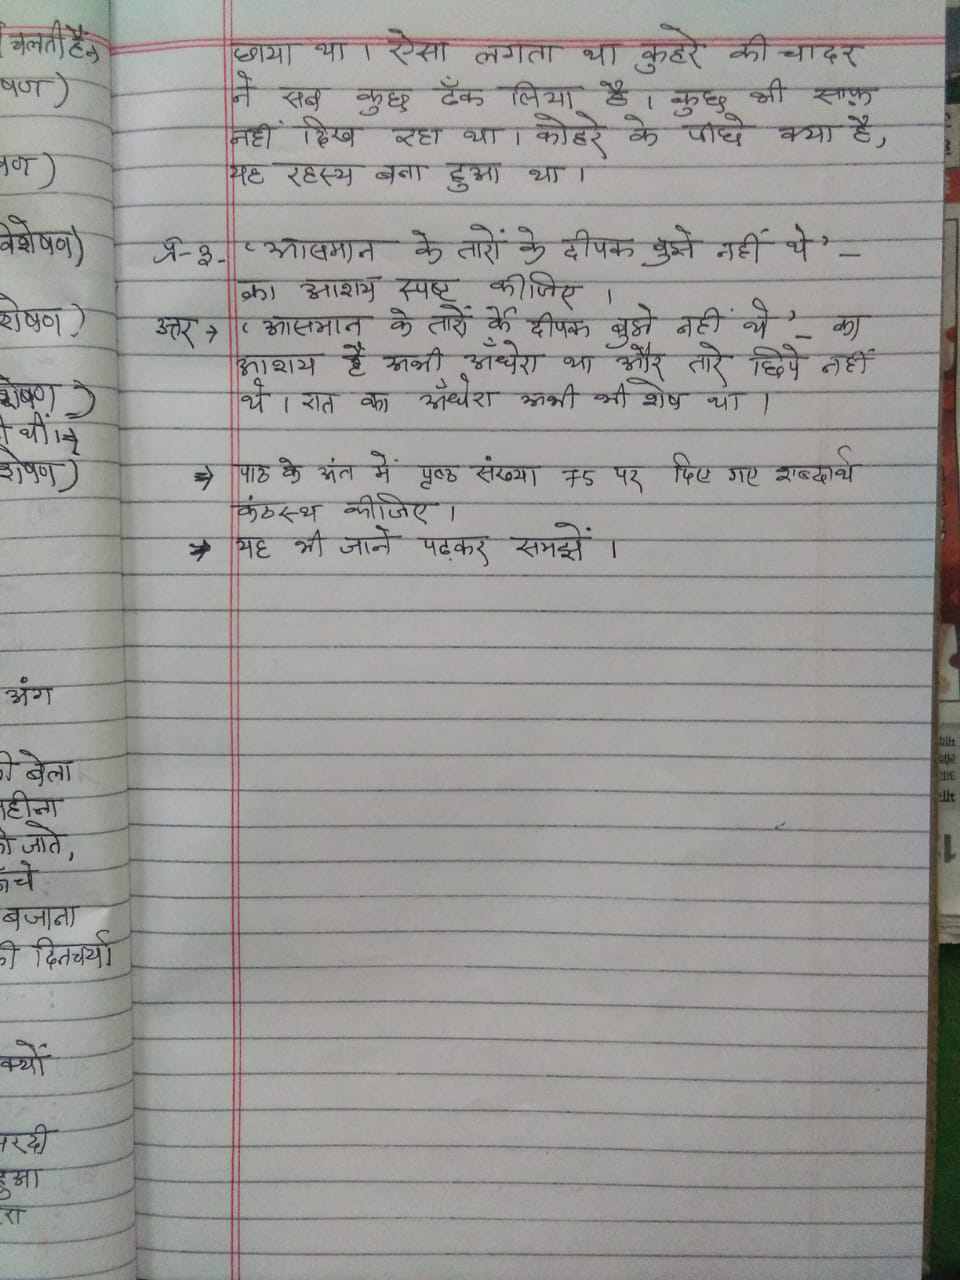 चलती हैं
षण)
षण)
विशेषण)
शेषण)
शेषण)
ी थीं।
शेषण)
अंग
की बेला
महीना
जाते,
बजाना
की दिनचर्या
क्यों
सरदी
हुआ
छाया था। ऐसा लगता था कुहरे की चादर
ने सब कुछ ढँक लिया है। कुछ भी साफ़
नहीं दिख रहा था। कोहरे के पीछे क्या है,
यह रहस्य बना हुआ था।
प्र-३. 'आसमान के तारों के दीपक बुझे नहीं थे' –
का आशय स्पष्ट कीजिए।
उत्तर → 'आसमान के तारों के दीपक बुझे नहीं थे' – का
आशय है अभी अँधेरा था और तारे छिपे नहीं
थे। रात का अँधेरा अभी भी शेष था।
⇒ पाठ के अंत में पृष्ठ संख्या 75 पर दिए गए शब्दार्थ
कंठस्थ कीजिए।
⇒ यह भी जानें पढ़कर समझें।